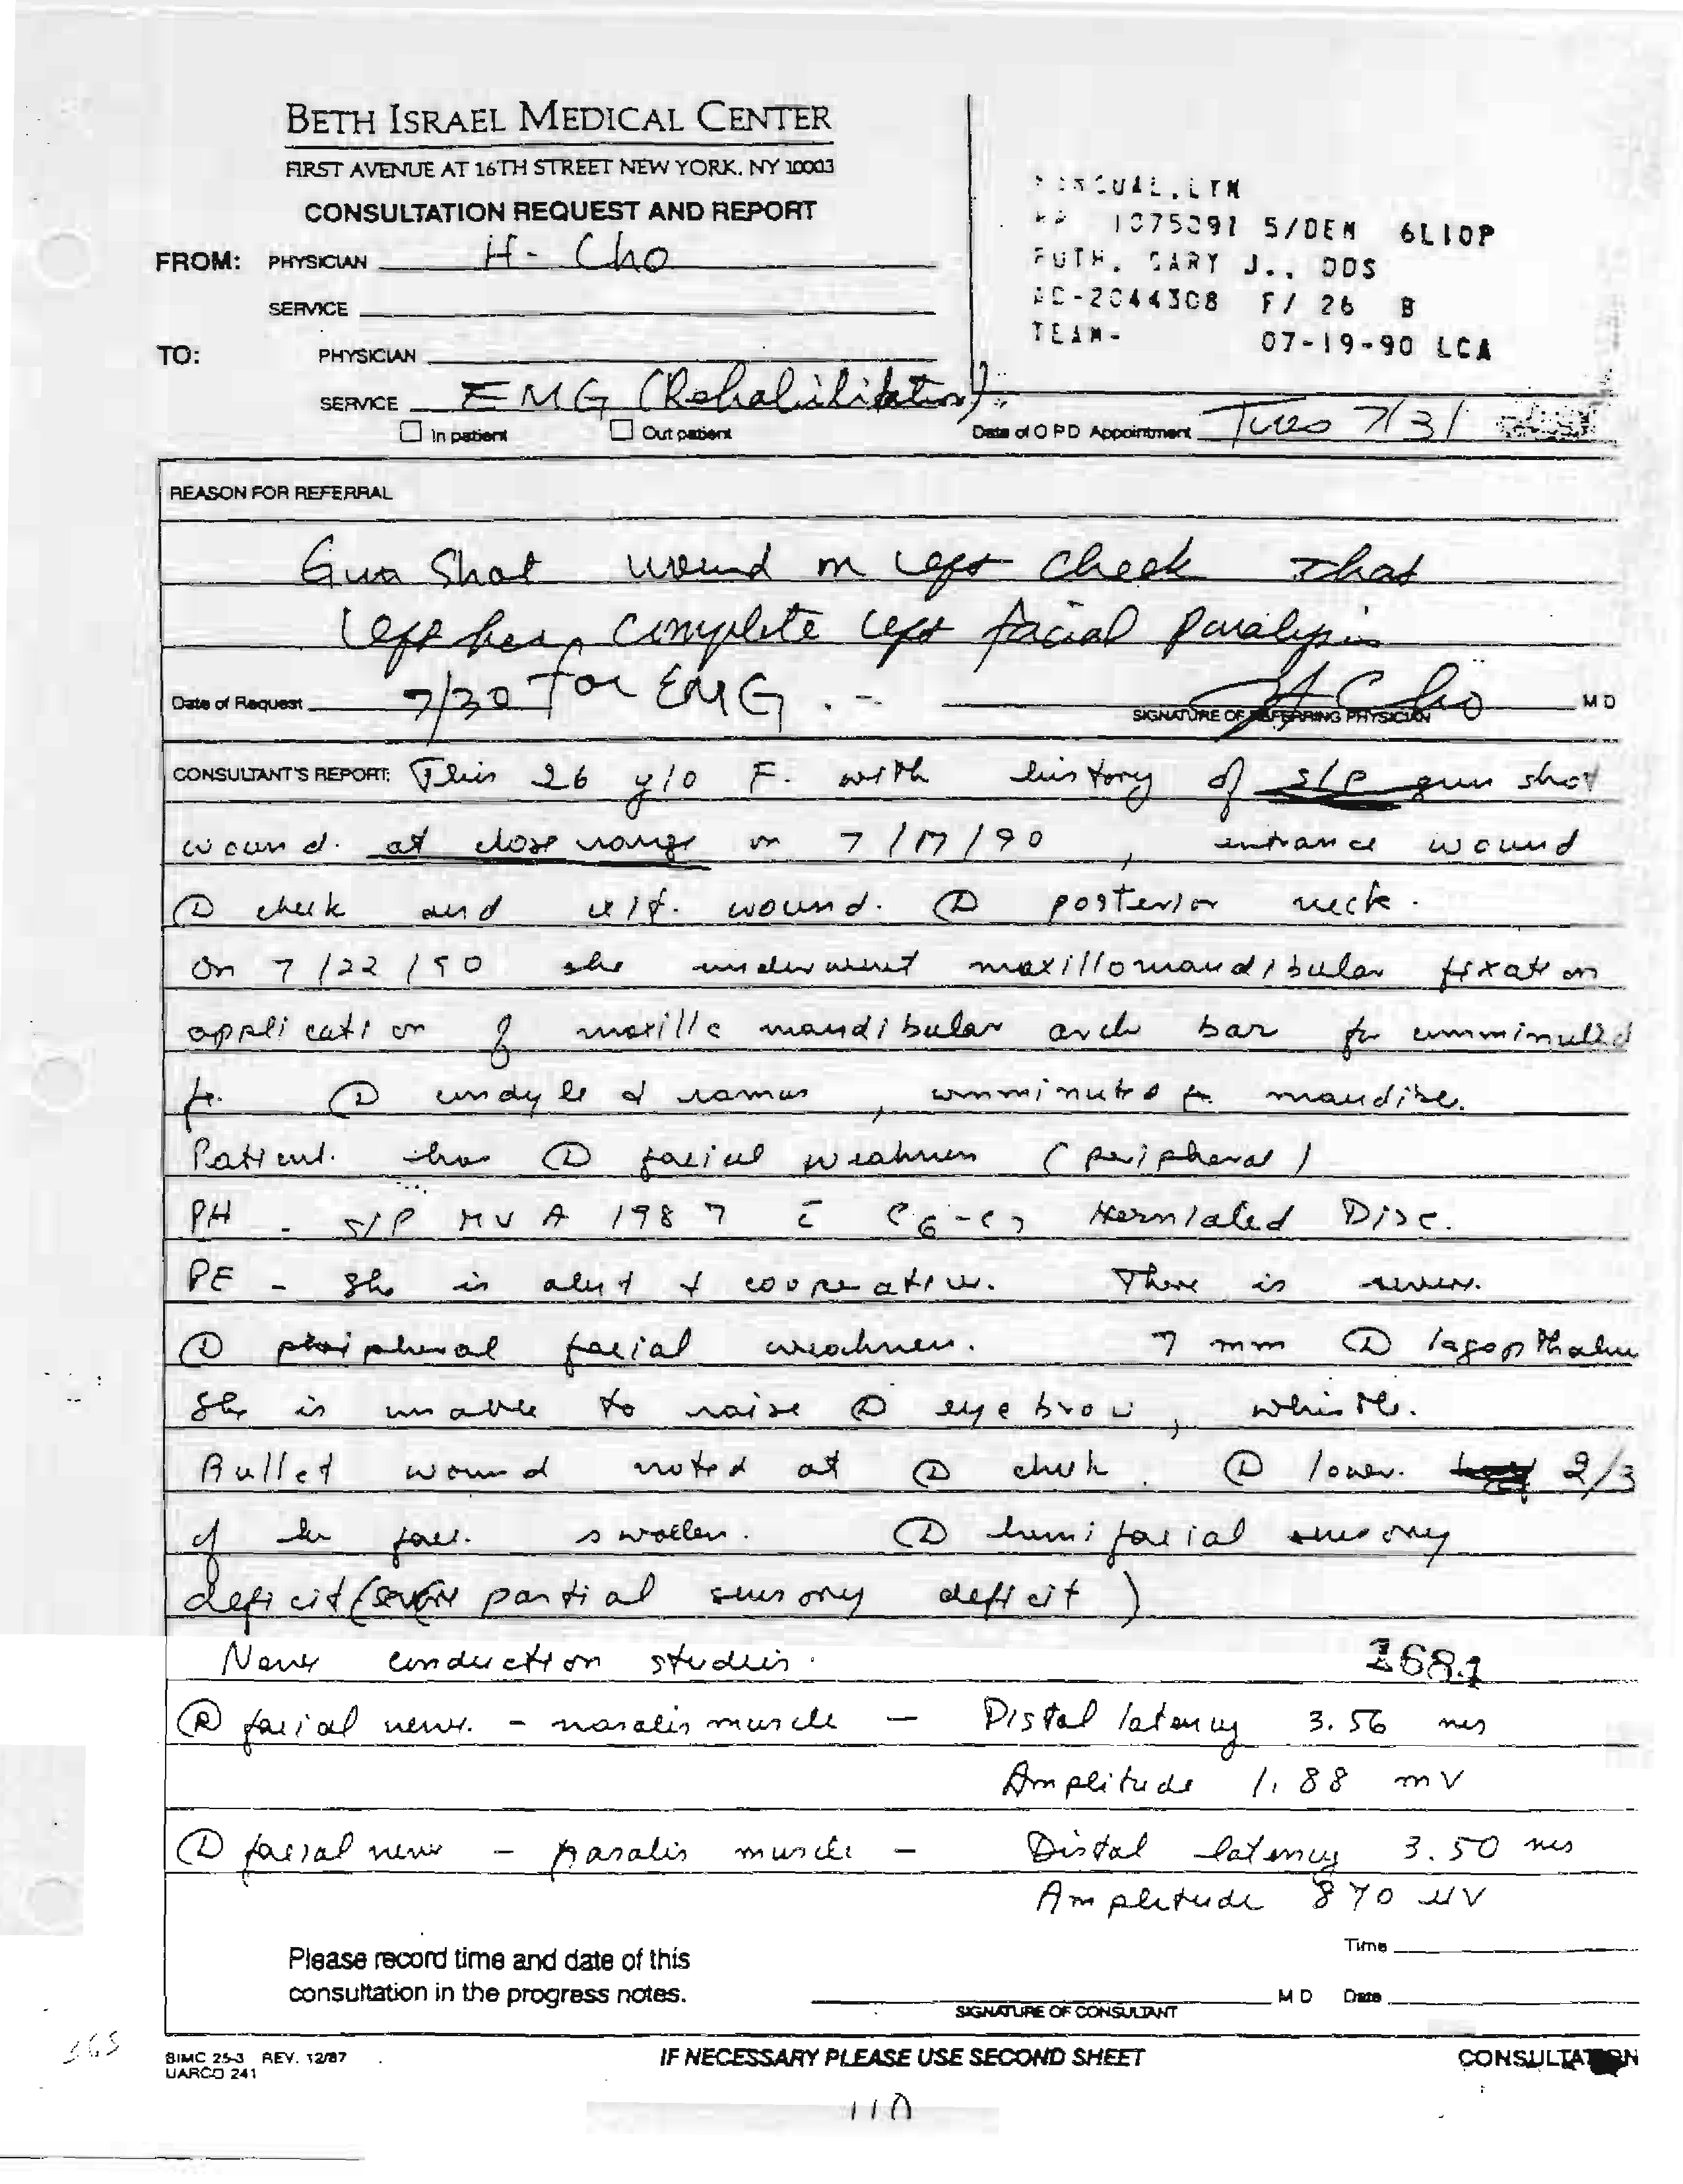 BETH ISRAEL MEDICAL CENTER
FIRST AVENUE AT 16TH STREET NEW YORK, NY 10003
CONSULTATION REQUEST AND REPORT
FROM: PHYSICIAN H. Cho
SERVICE
TO: PHYSICIAN
SERVICE EMG (Rehabilitation)
In patient Out patient
SCUAL, LYN
1075091 5/DEM 6L10P
RUTH, GARY J., DDS
AC-2044308 F/ 26 B
TEAM-
07-19-90 LCA
Date of O P D Appointment Tues 7/31
REASON FOR REFERRAL
Gun Shot wound on left cheek that
left her complete left facial paralysis
Date of Request 7/30 for EMG. H Cho M D
SIGNATURE OF REFERRING PHYSICIAN
CONSULTANT'S REPORT: This 26 y/o F. with history of s/p gun shot
wound. at close range on 7/17/90, entrance wound
Ⓛ cheek and exit. wound. Ⓛ posterior neck.
On 7/22/90 she underwent maxillomandibular fixation
application of maxillo mandibular arch bar for comminuted
fx. Ⓛ condyle & ramus, comminuted fx mandible.
Patient. has Ⓛ facial weakness (peripheral)
PH - S/P MVA 1987 c̄ C6-C7 Herniated Disc.
PE - She is alert & cooperative. There is severe.
Ⓛ peripheral facial weakness. 7 mm Ⓛ lagopthalm
She is unable to raise Ⓛ eyebrow, whistle.
Bullet wound noted at Ⓛ cheek. Ⓛ lower. 2/3
of her face. swollen. Ⓛ hemifacial sensory
deficit (severe partial sensory deficit)
Nerve conduction studies.
2681
Ⓡ facial nerve. - nasalis muscle - Distal latency 3.56 ms
Amplitude 1.88 mV
Ⓛ facial nerve - nasalis muscle - Distal latency 3.50 ms
Amplitude 870 uV
Please record time and date of this
consultation in the progress notes.
Time
M D Date
SIGNATURE OF CONSULTANT
365
BIMC 25-3 REV. 12/87
UARCO 241
IF NECESSARY PLEASE USE SECOND SHEET
CONSULTATION
110